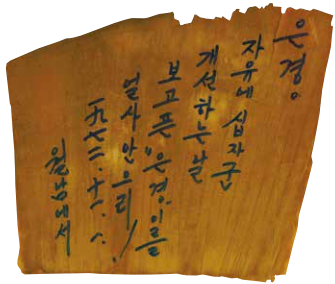 은경。
자유에 십자군
개선하는 날
보고픈 "은경"이를
얼사안으리!
一九七二.十一.八.
월남에서